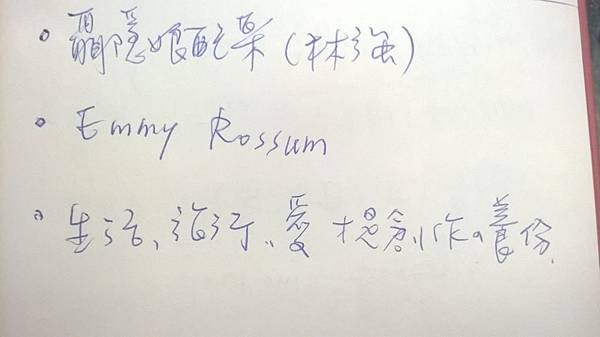 • 聶隱娘配樂 (林強)
• Emmy Rossum
• 生活、旅行、愛 才是創作の養份.